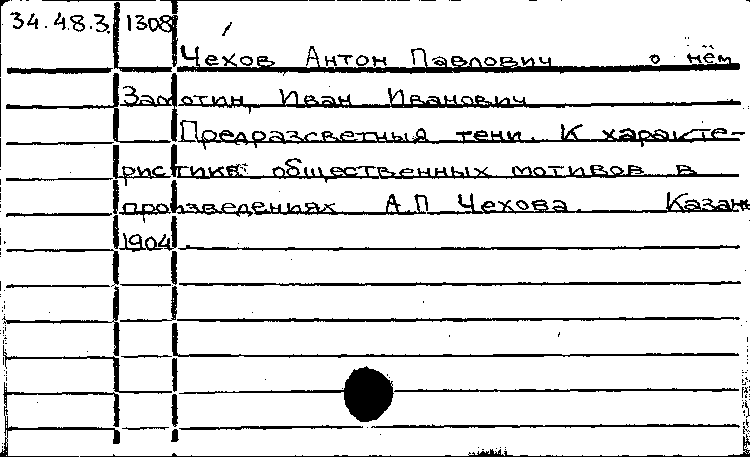 34.48.3. 1308
Чехов Антон Павлович о нём
Замотин, Иван Иванович
Предразсветныя тени. К характе-
ристике общественных мотивов в
произведениях А.П. Чехова. Казань
1904.